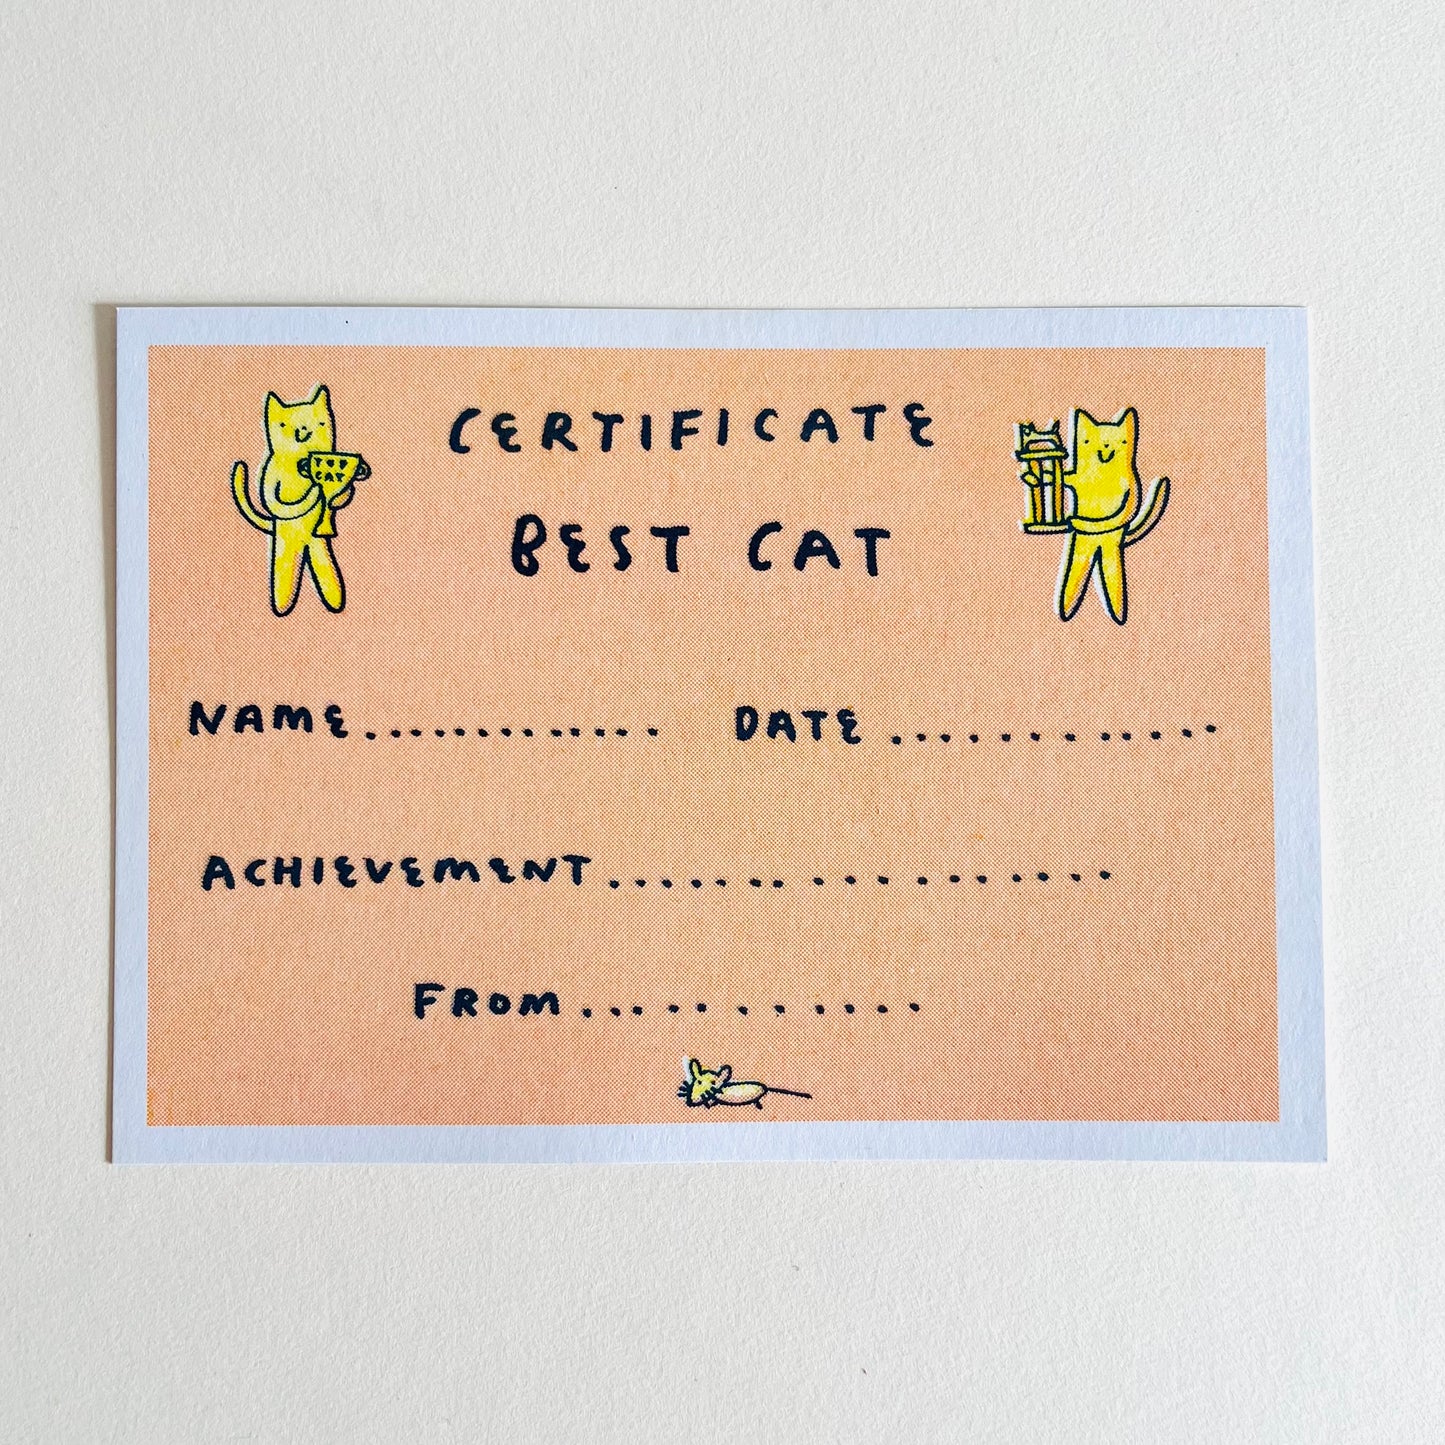 CERTIFICATE
BEST CAT
TOP
CAT
NAME............. DATE.............
ACHIEVEMENT...............
FROM............